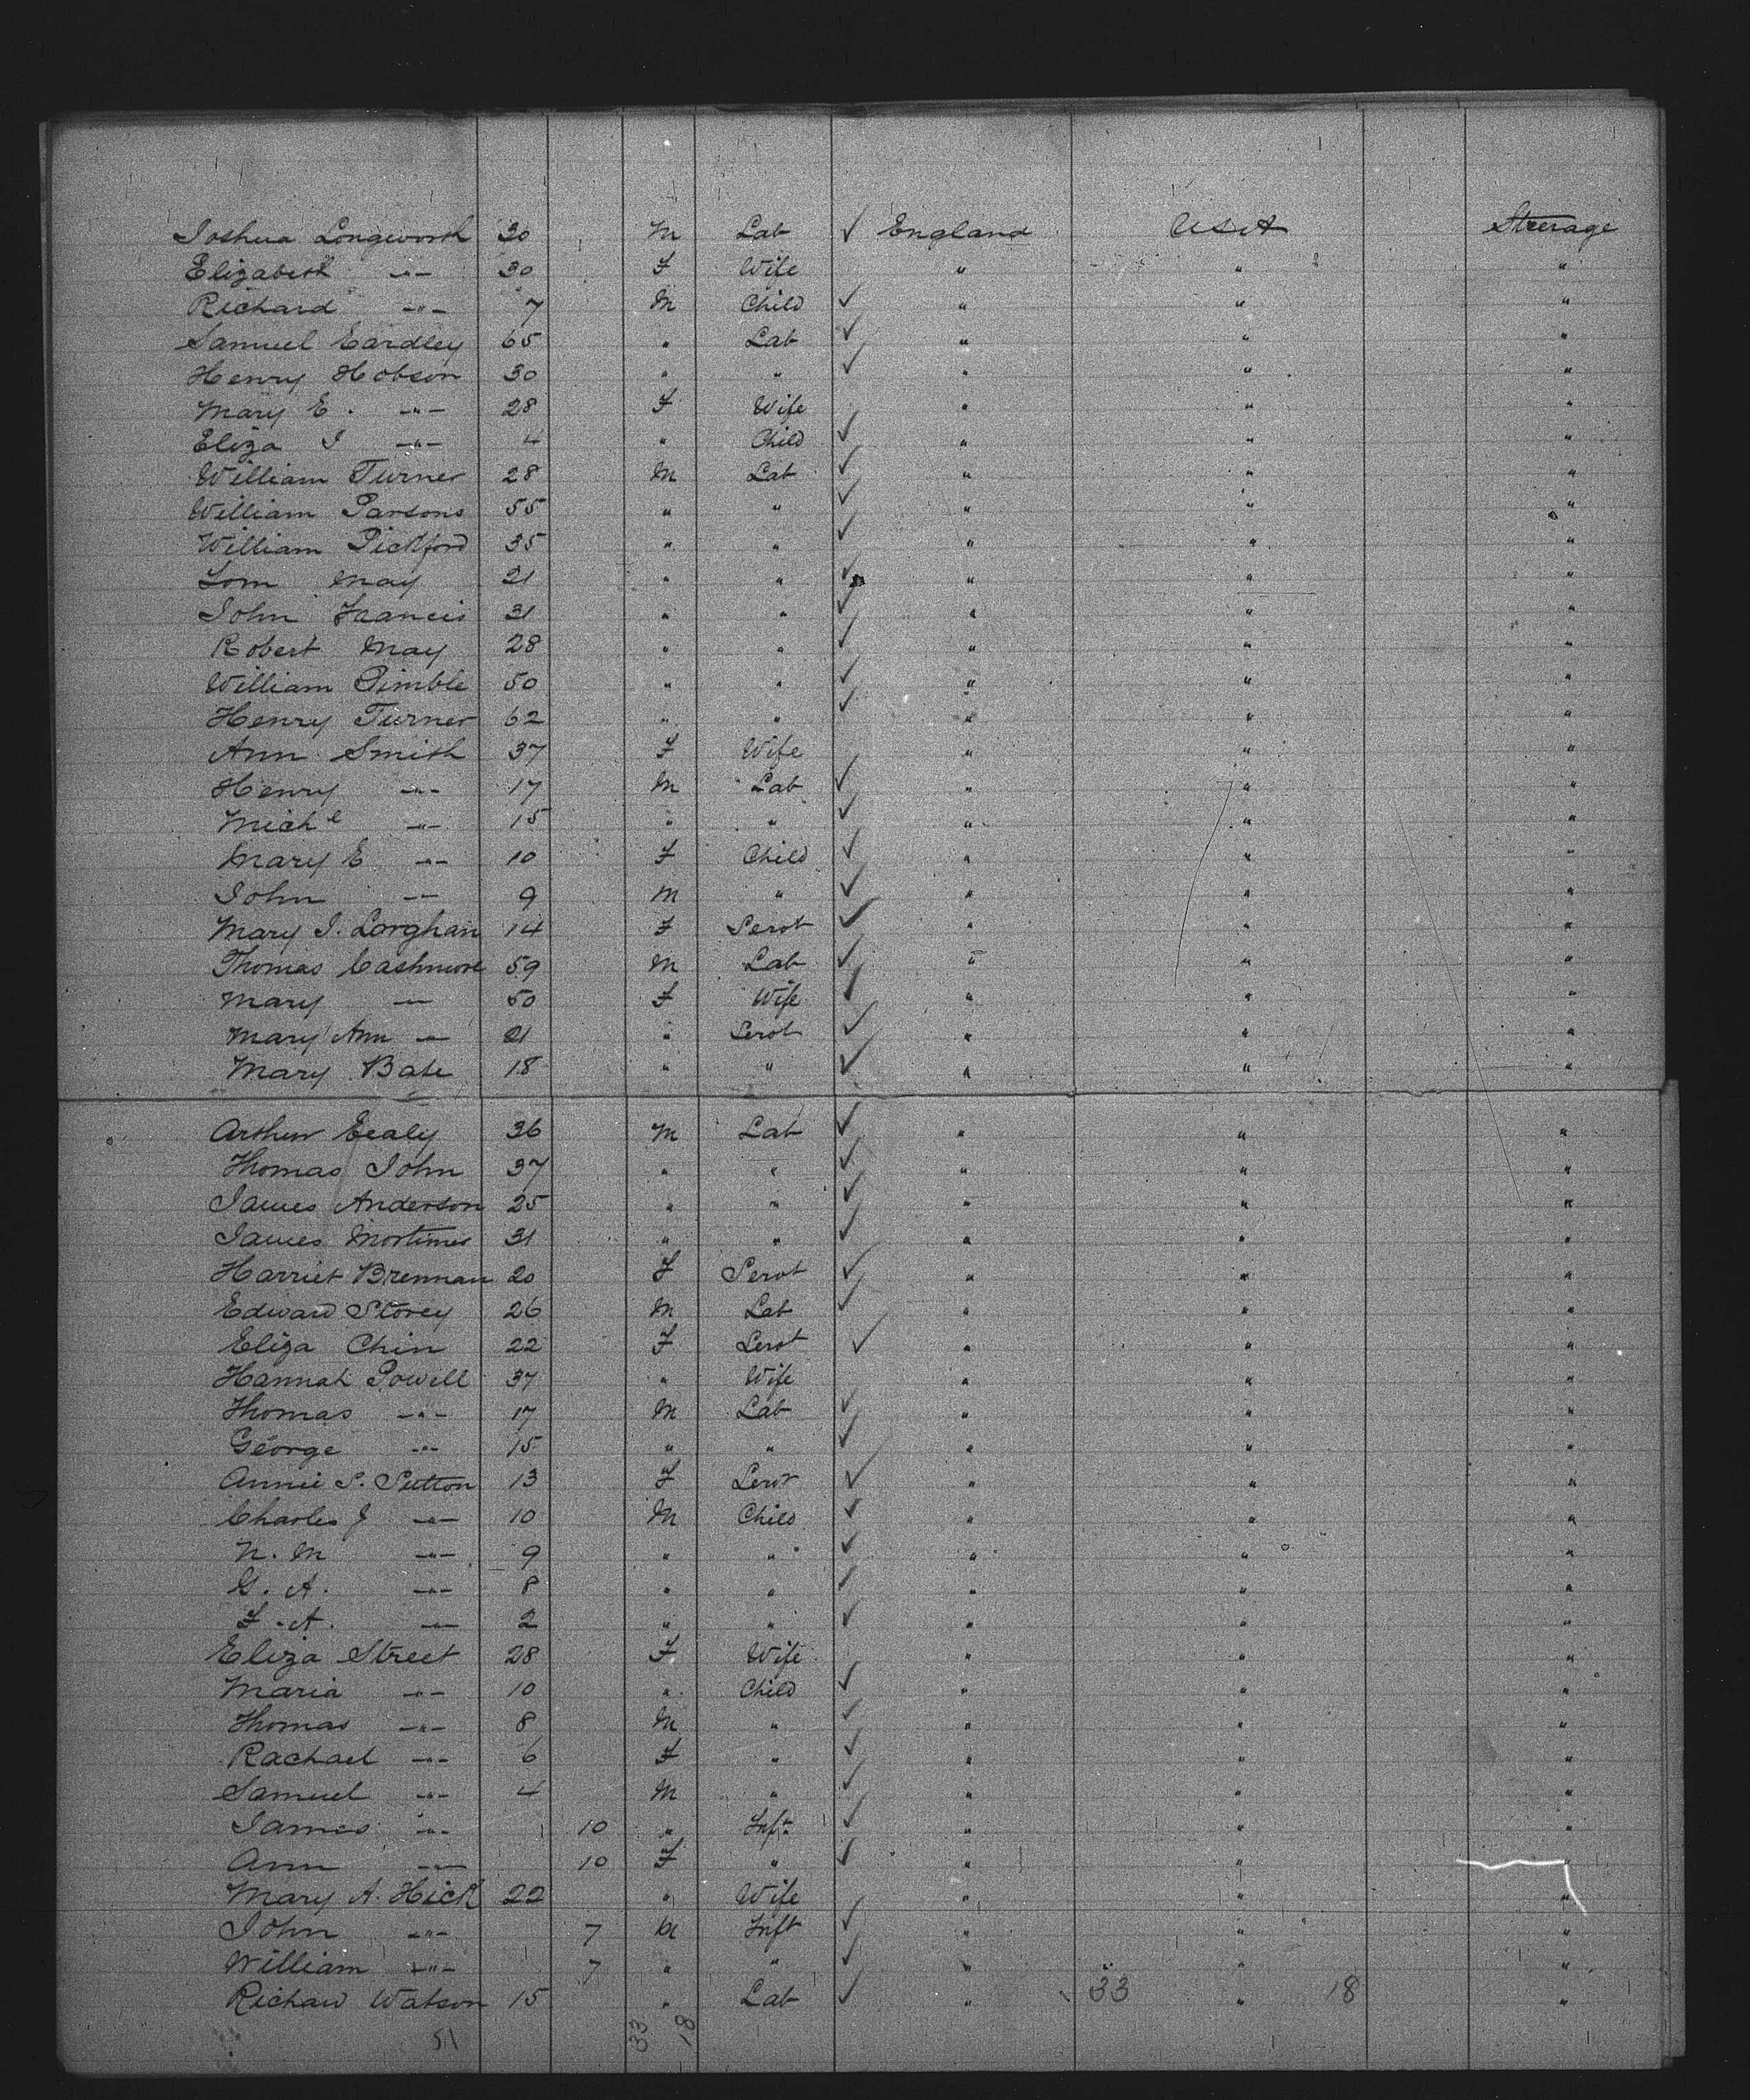 Joshua Longworth 30 M Lab ✓ England USA Steerage
Elizabeth -"- 30 F Wife " " "
Richard -"- 7 M Child ✓ " " "
Samuel Eardley 65 " Lab ✓ " " "
Henry Hobson 30 " " ✓ " " "
Mary E. -"- 28 F Wife " " "
Eliza J -"- 4 " Child ✓ " " "
William Turner 28 M Lab ✓ " " "
William Parsons 55 " " ✓ " " "
William Pickford 35 " " ✓ " " "
Tom May 21 " " ✓ " " "
John Francis 31 " " ✓ " " "
Robert May 28 " " ✓ " " "
William Pimble 50 " " ✓ " " "
Henry Turner 62 " " ✓ " " "
Ann Smith 37 F Wife " " "
Henry -"- 17 M Lab ✓ " " "
Michl -"- 15 " " ✓ " " "
Mary E -"- 10 F Child ✓ " " "
John -"- 9 M " ✓ " " "
Mary J. Langhan 14 F Servt ✓ " " "
Thomas Cashmore 59 M Lab ✓ " " "
Mary -"- 50 F Wife ✓ " " "
Mary Ann -"- 21 " Servt ✓ " " "
Mary Bate 18 " " ✓ " " "
Arthur Ecaly 36 M Lab ✓ " " "
Thomas John 37 " " ✓ " " "
James Anderson 25 " " ✓ " " "
James Mortimer 31 " " ✓ " " "
Harriet Brennan 20 F Servt ✓ " " "
Edward Storey 26 M Lab ✓ " " "
Eliza Chin 22 F Servt ✓ " " "
Hannah Powell 37 " Wife " " "
Thomas -"- 17 M Lab ✓ " " "
George -"- 15 " " ✓ " " "
Annie S. Sutton 13 F Servt ✓ " " "
Charles J -"- 10 M Child ✓ " " "
N. M -"- 9 " " ✓ " " "
G. A. -"- 8 " " ✓ " " "
F. A. -"- 2 " " ✓ " " "
Eliza Street 28 F Wife " " "
Maria -"- 10 " Child ✓ " " "
Thomas -"- 8 M " ✓ " " "
Rachael -"- 6 F " ✓ " " "
Samuel -"- 4 M " ✓ " " "
James -"- 10 " Inft ✓ " " "
Ann -"- 10 F " ✓ " " "
Mary A. Hick 22 " Wife " " "
John -"- 7 M Inft ✓ " " "
William -"- 7 " " ✓ " " "
Richard Watson 15 " Lab ✓ " 33 " 18 "
51 33 18